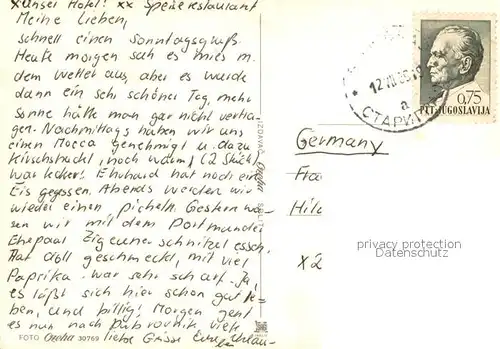 x Unser Hotel! xx Speiserestaurant
Meine Lieben,
schnell einen Sonntagsgruß.
Heute morgen sah es mies m.
dem Wetter aus, aber es wurde
dann ein sehr schöner Tag, mehr
Sonne hätte man gar nicht vertra-
gen. Nachmittags haben wir uns
einen Mocca genehmigt u. dazu
Kirschstrudel, noch warm! (2 Stück)
war lecker! Ehrhard hat noch ein
Eis gegessen. Abends werden wir
wieder einen picheln. Gestern wa-
ren wir mit dem Dortmunder
Ehepaar Zigeunerschnitzel essen.
Hat doll geschmeckt, mit viel
Paprika. War sehr scharf. Ja,
es läßt sich hier schon gut le-
ben, und billig! Morgen geht
es nun nach Dubrovnik. Viele
liebe Grüsse Eure
FOTO 30769
IZDAVAČ SPLIT
СТАРИГ
0,75
PTT JUGOSLAVIJA
Germany
Fra
Hil
x 2
privacy protection
Datenschutz